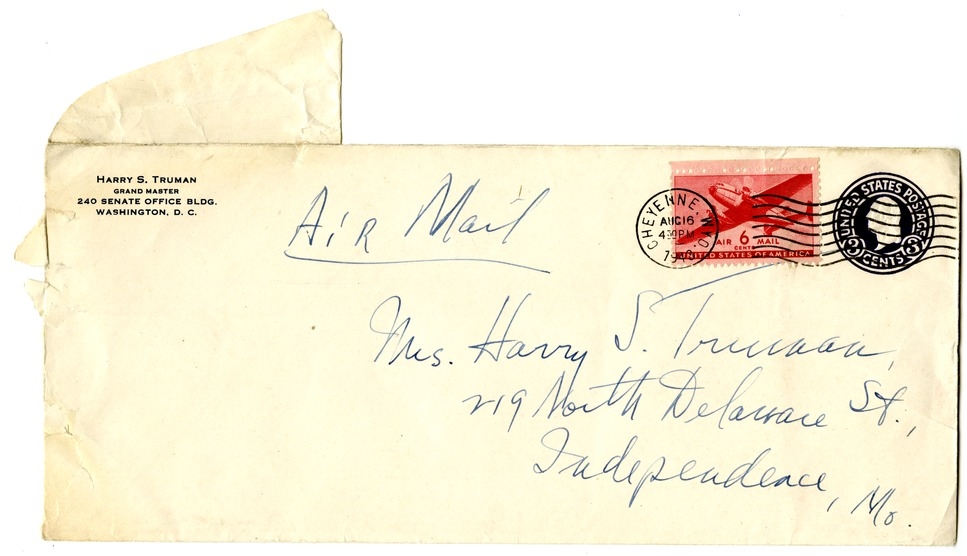 HARRY S. TRUMAN
GRAND MASTER
240 SENATE OFFICE BLDG.
WASHINGTON, D. C.
Air Mail
CHEYENNE, WYO.
AUG 16
4 30 PM
AIR 6 MAIL
CENTS
UNITED STATES OF AMERICA
UNITED STATES POSTAGE
3 CENTS 3
Mrs. Harry S. Truman,
219 North Delaware St.,
Independence, Mo.